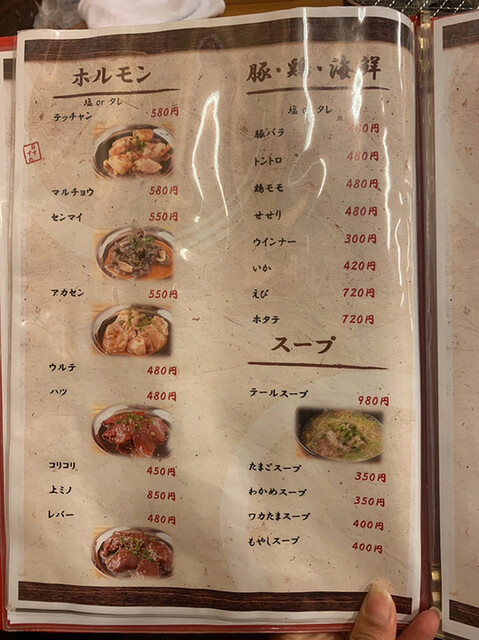 ホルモン
塩 or タレ
テッチャン 580円
おすすめ
マルチョウ 580円
センマイ 550円
アカセン 550円
ウルテ 480円
ハツ 480円
コリコリ 450円
上ミノ 850円
レバー 480円
豚・鶏・海鮮
塩 or タレ
豚バラ 480円
トントロ 480円
鶏モモ 480円
せせり 480円
ウインナー 300円
いか 420円
えび 720円
ホタテ 720円
スープ
テールスープ 980円
たまごスープ 350円
わかめスープ 350円
ワカたまスープ 400円
もやしスープ 400円